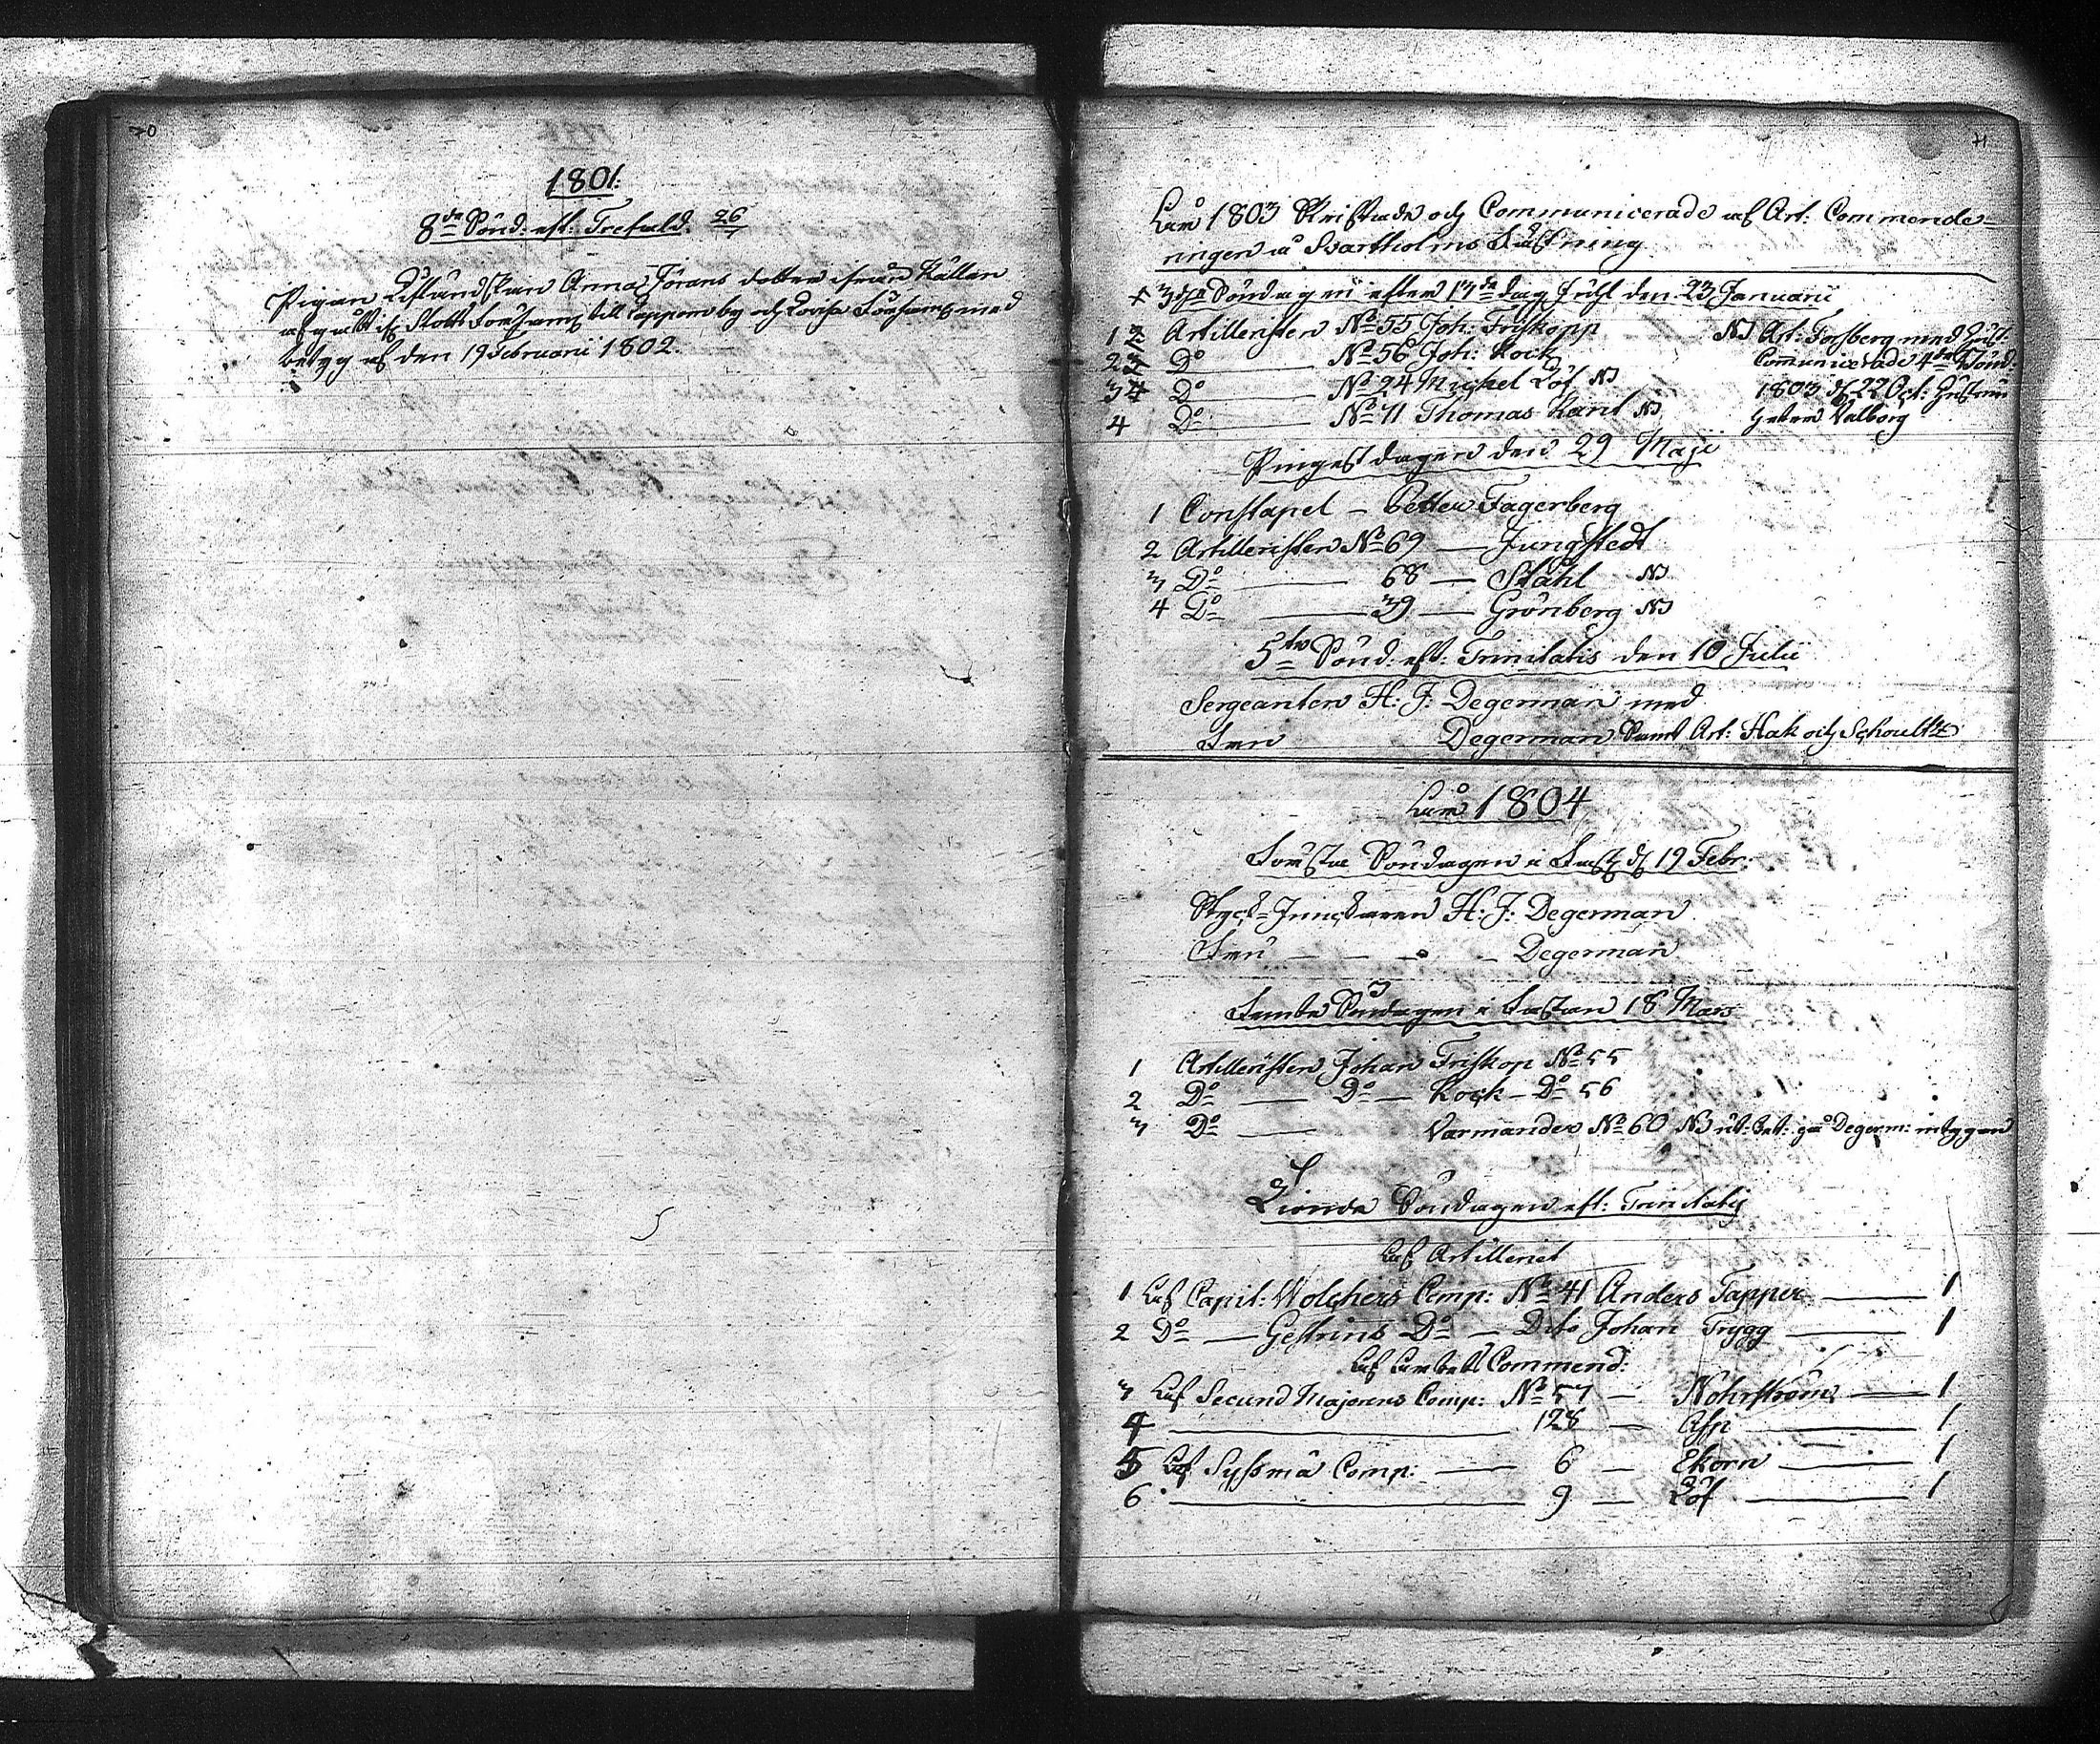 70
1801.
8de Sönd: eft: Trefald. 26/7
Pigan Lifländskan Anna Jörans dotter ifrån Källan
Slotts Församl till Kappom by och Lovisa Församl med
betyg af den 19 Februarii 1802.
71
Åår 1803 Skriftade och Communicerade af Art: Commende-
ringen å Svartholms Fästning
3dje Söndagen efter 13de dag Juhl den 23 Januarii
1 Artilleristen No 55 Joh: Friskopp
2 Do No 56 Joh: Kock
3 Do No 24 Mickel Löf NB
4 Do No 71 Thomas Rant NB
NB Art: Forsberg med Hust:
Communicerade 4de Sönd:
1803 d 22 Oct: Hustrun
heter Valborg
Pingestdagen den 29 Maji
1 Constapel – Petter Fagerberg
2 Artilleristen No 69 — Jungstedt
3 Do — 68 — Ståhl NB
4 Do — 39 — Grönberg NB
5te Sönd: eft: Trinitatis den 10 Julii
Sergeanten H: J: Degerman med
Fru Degerman Samt Art: Hak och Schoultz
Åår 1804
Första Söndagen i Fast: d 19 Febr:
Styck-Junckaren H: J: Degerman
Fru – – – – Degerman
Femte Söndagen i Fastan 18 Mars
1 Artilleristen Johan Friskop No 55
2 Do — Do — Kock – Do 56
3 Do — Varmander No 60 NB ut: bet: på Degerm: intygan
Tionde Söndagen eft: Trinitatis
Af Artilleriet
1 Af Capit: Wolchers Comp: No 41 Anders Tapper — 1
2 Do — Gestrins Do — Dito Johan Trygg — 1
Af Arbets Commend:
3 Af Secund Majorens Comp: No 57 — Nohrström — 1
4 — 128 — Asp — 1
5 Af Sysmä Comp: — 6 — Ekorn — 1
6 — 9 — Löf — 1